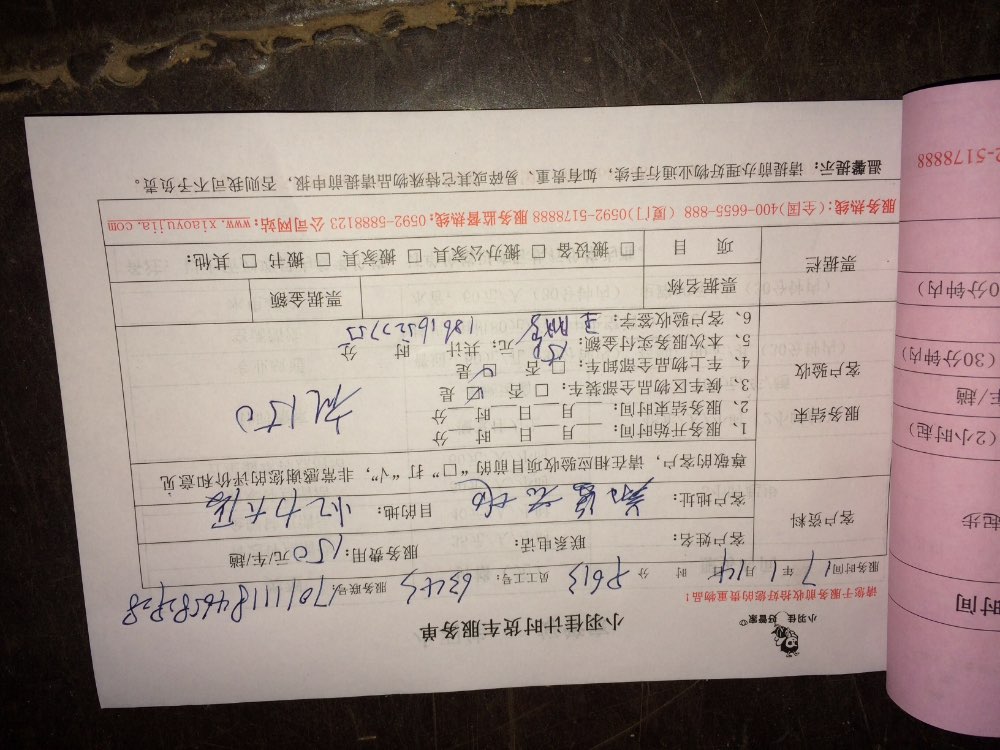 小羽佳 好管家
小羽佳计时货车服务单
请您于服务前收拾好您的贵重物品！
服务时间 17年1月14日 时 分 员工工号： 服务联号
客户资料 客户姓名： 联系电话： 服务费用：150元/车/趟
客户地址： 目的地：
尊敬的客户，请在相应验收项目前的“□”打“√”，非常感谢您的评价和意见
服务结束
客户验收
1、服务开始时间：___月___日___时___分
2、服务结束时间：___月___日___时___分
3、候车区物品全部装车：□ 否 ☑ 是
4、车上物品全部卸车：□ 否 ☑ 是
5、本次服务实付金额：150元；共计 时 分
6、客户验收签字：
票据栏 票据名称 票据金额
项 目 □ 搬设备 □ 搬办公家具 □ 搬家具 □ 搬书 □ 其他：
服务热线：(全国)400-6655-888 (厦门)0592-5178888 服务监督热线：0592-5888123 公司网站：www.xiaoyujia.com
温馨提示：请提前办理好物业通行手续，如有贵重、易碎或其它特殊物品请提前申报，否则我司可不予负责。
2-5178888
0分钟内）
（30分钟内）
车/趟
（2小时起）
起步
时间